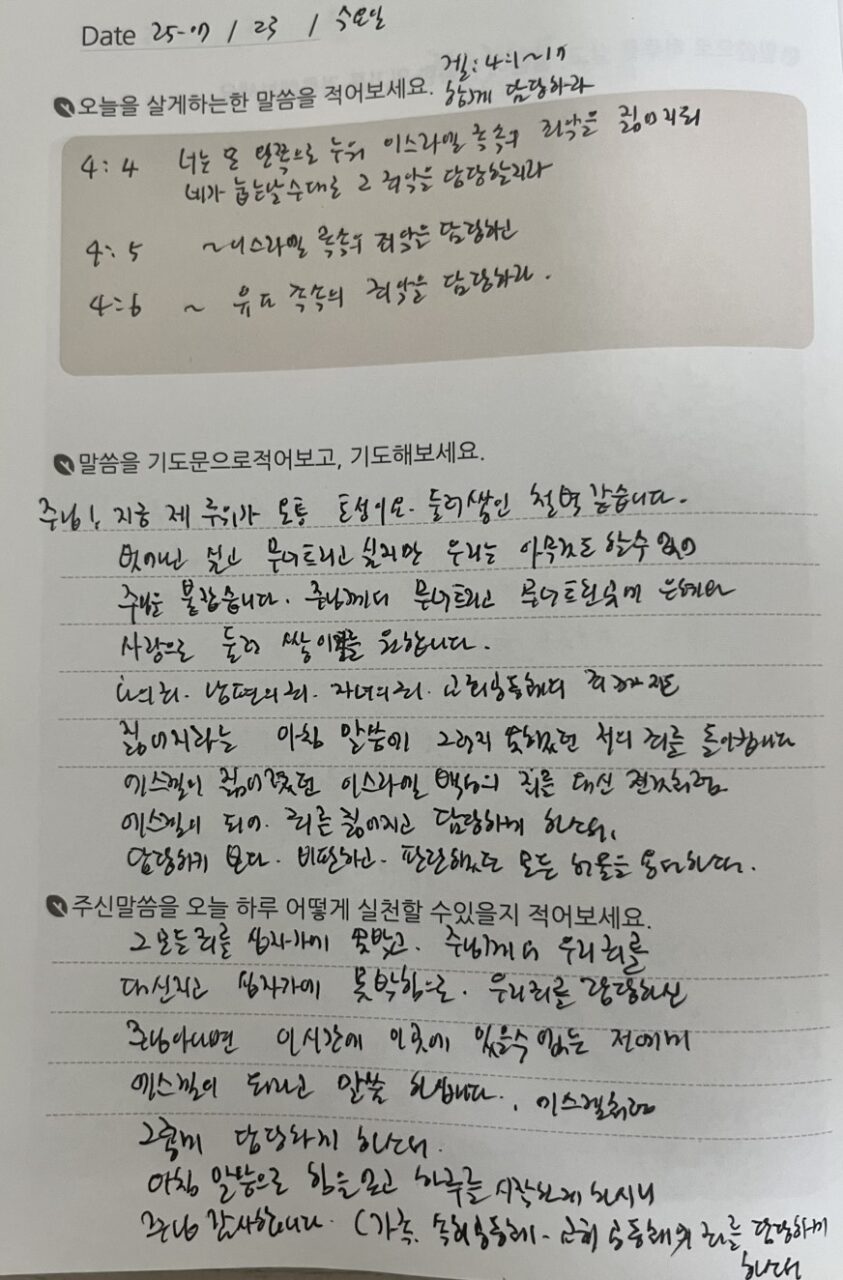 Date 25-07 / 23 / 수요일
겔:4:1~17
오늘을 살게하는한 말씀을 적어보세요. 함께 담당하라
4:4 너는 또 왼쪽으로 누워 이스라엘 족속의 죄악을 짊어지되
네가 눕는날수대로 그 죄악을 담당할지라
4:5 ~이스라엘 족속의 죄악을 담당하고
4:6 ~ 유다 족속의 죄악을 담당하라.
말씀을 기도문으로적어보고, 기도해보세요.
주님! 지금 제 주위가 모통 토성이요. 둘러쌓인 철벽 같습니다.
없애고 싶고 무너트리고 싶지만 우리는 아무것도 할수 없어
주님을 붙잡습니다. 주님께서 무너트리고 무너트린 은혜와
사랑으로 둘러 쌓이기를 원합니다.
나의 죄. 남편의 죄. 자녀의 죄. 교회공동체의 죄까지도
짊어지라는 아침 말씀에 그러지 못했던 저의 죄를 돌아봅니다
에스겔이 짊어졌던 이스라엘 백성의 죄를 대신 진것처럼
에스겔이 되어. 죄를 짊어지고 담당하게 하소서.
담당하기 보다. 비판하고. 판단했던 모든 허물을 용서하소서.
주신말씀을 오늘 하루 어떻게 실천할 수있을지 적어보세요.
그 모든 죄를 십자가에 못박고. 주님께서 우리 죄를
대신지고 십자가에 못박힘으로. 우리죄를 담당하신
주님아니면 이시간에 이곳에 있을수 없는 저에게
에스겔이 되라고 말씀 하십니다. 에스겔처럼
담당하게 하소서.
아침 말씀으로 힘을 얻고 하루를 시작하게 하시니
주님 감사합니다. (가족. 속회공동체. 교회 공동체의 죄를 담당하게
하소서